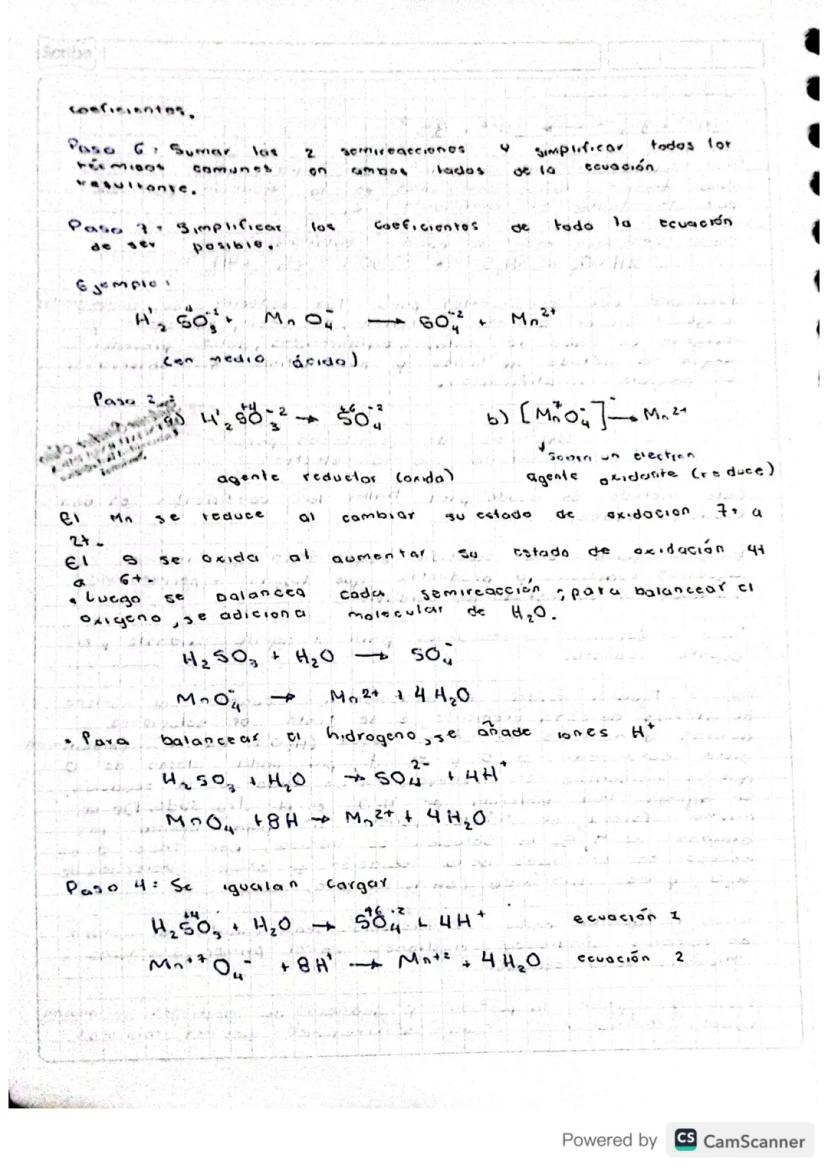 Scribe
coeficientes.
Paso 6: Sumar las 2 semireacciones y simplificar todos los
términos comunes en ambos lados de la ecuación
resultante.
Paso 7: Simplificar los coeficientes de todo la ecuación
de ser posible.
Ejemplo:
H¹₂ SO₃⁻² + MnO₄⁻ → SO₄⁻² + Mn²⁺
(en medio ácido)
Paso 2:
a) H¹₂S⁺⁴O₃⁻² → S⁺⁶O₄⁻² b) [Mn⁷O₄⁻]⁻ → Mn²⁺
un electron
agente reductor (oxida) agente oxidante (reduce)
El Mn se reduce al cambiar su estado de oxidacion 7+ a
2+.
El S se oxida al aumentar su estado de oxidación 4+
a 6+.
• Luego se balancea cada semireacción; para balancear el
oxigeno, se adiciona molecular de H₂O.
H₂SO₃ + H₂O → SO₄⁻
MnO₄⁻ → Mn²⁺ + 4H₂O
• Para balancear el hidrogeno, se añade iones H⁺
H₂SO₃ + H₂O → SO₄²⁻ + 4H⁺
MnO₄ + 8H → Mn²⁺ + 4H₂O
Paso 4: Se igualan cargar
H₂S⁺⁴O₃ + H₂O → S⁺⁶O₄⁻² + 4H⁺ ecuación 1
Mn⁺⁷O₄⁻ + 8H¹ → Mn⁺² + 4H₂O ecuación 2
Powered by CS CamScanner